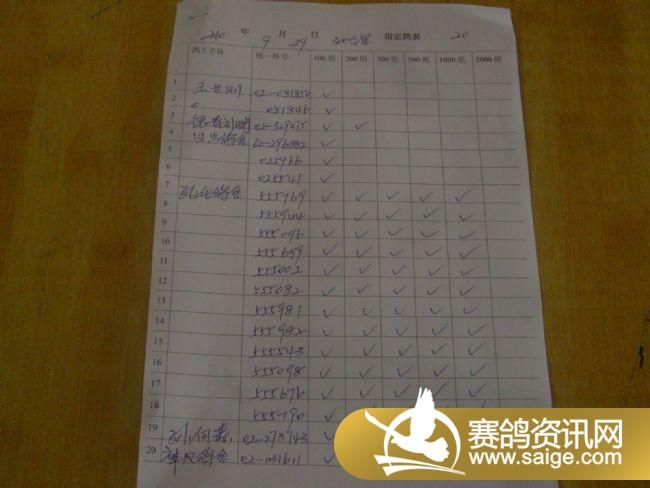 2010 年 9 月 29 日 300公里 指定鸽表 20
鸽主名称 统一环号 100 组 200 组 300 组 500 组 1000 组 2000 组
1 02-081850 ✓
2 081846 ✓
3 02-329075 ✓ ✓
4 32-296882 ✓
5 025966 ✓
6 025541 ✓
7 555769 ✓ ✓ ✓ ✓ ✓
8 555944 ✓ ✓ ✓ ✓ ✓
9 555096 ✓ ✓ ✓ ✓ ✓
10 555699 ✓ ✓ ✓ ✓ ✓
11 555002 ✓ ✓ ✓ ✓ ✓
12 555082 ✓ ✓ ✓ ✓ ✓
13 555981 ✓ ✓ ✓ ✓ ✓
14 555992 ✓ ✓ ✓ ✓ ✓
15 555543 ✓ ✓ ✓ ✓ ✓
16 555098 ✓ ✓ ✓ ✓ ✓
17 555676 ✓ ✓ ✓ ✓ ✓
18 555790 ✓ ✓ ✓
19 02-273743 ✓
20 02-031611 ✓
赛鸽资讯网
www.saige.com